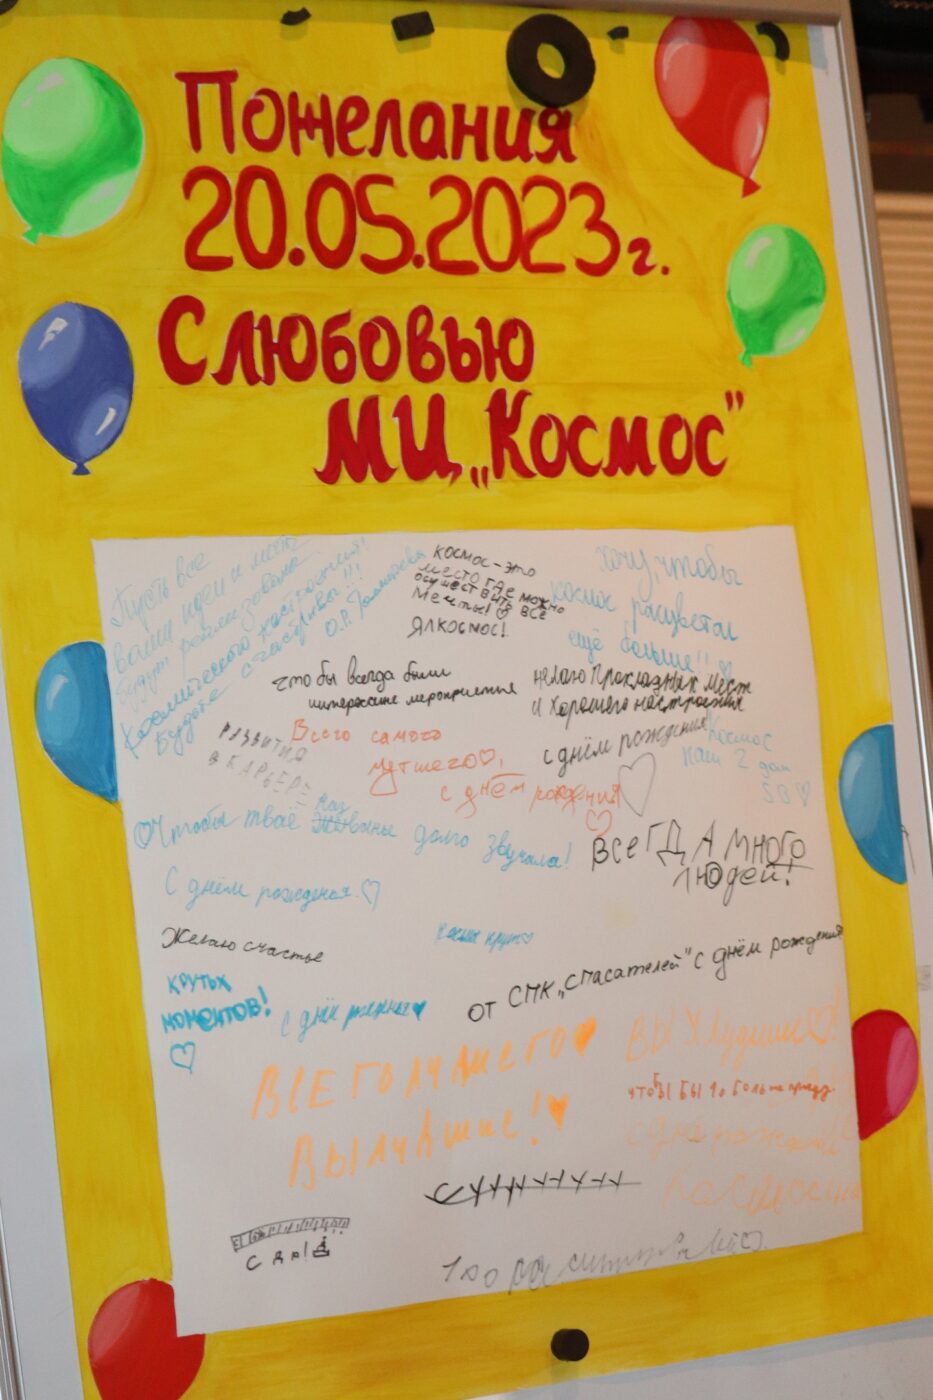 Пожелания
20.05.2023г.
С любовью
МЦ „Космос"
Пусть все
ваши идеи и мечты
будут реализованы
Космического настроения!
Будьте счастливы!!!
О.Р.
космос-это
место где можно
осуществить все
мечты! ♡
ЯЛКОСМОС!
хочу, чтобы
космос расцветал
ещё больше!! ♡
чтобы всегда были
мероприятия
желаю прохладных мест
и хорошего настроения
РАЗВИТИЯ
в КАРЬЕРЕ
Всего самого
лутшего♡!
с днём рождения
с днём рождения
Космос
наш 2 дом
SB♡
♡Чтобы твоё долго звучала!
ВСЕГДА МНОГО
людей!
С днём рожденья ♡
Желаю счастье
Космос круто♡
КРУТЫХ
МОМЕНТОВ!
♡
С днём рождения♥
от СМК „Спасателей" с днём рождения
ВСЕГО ЛУЧШЕГО♥
ВЫ ЛУЧШИЕ!♥
ВЫ Лудшие♡!
чтобы было больше
с днём рождения
100